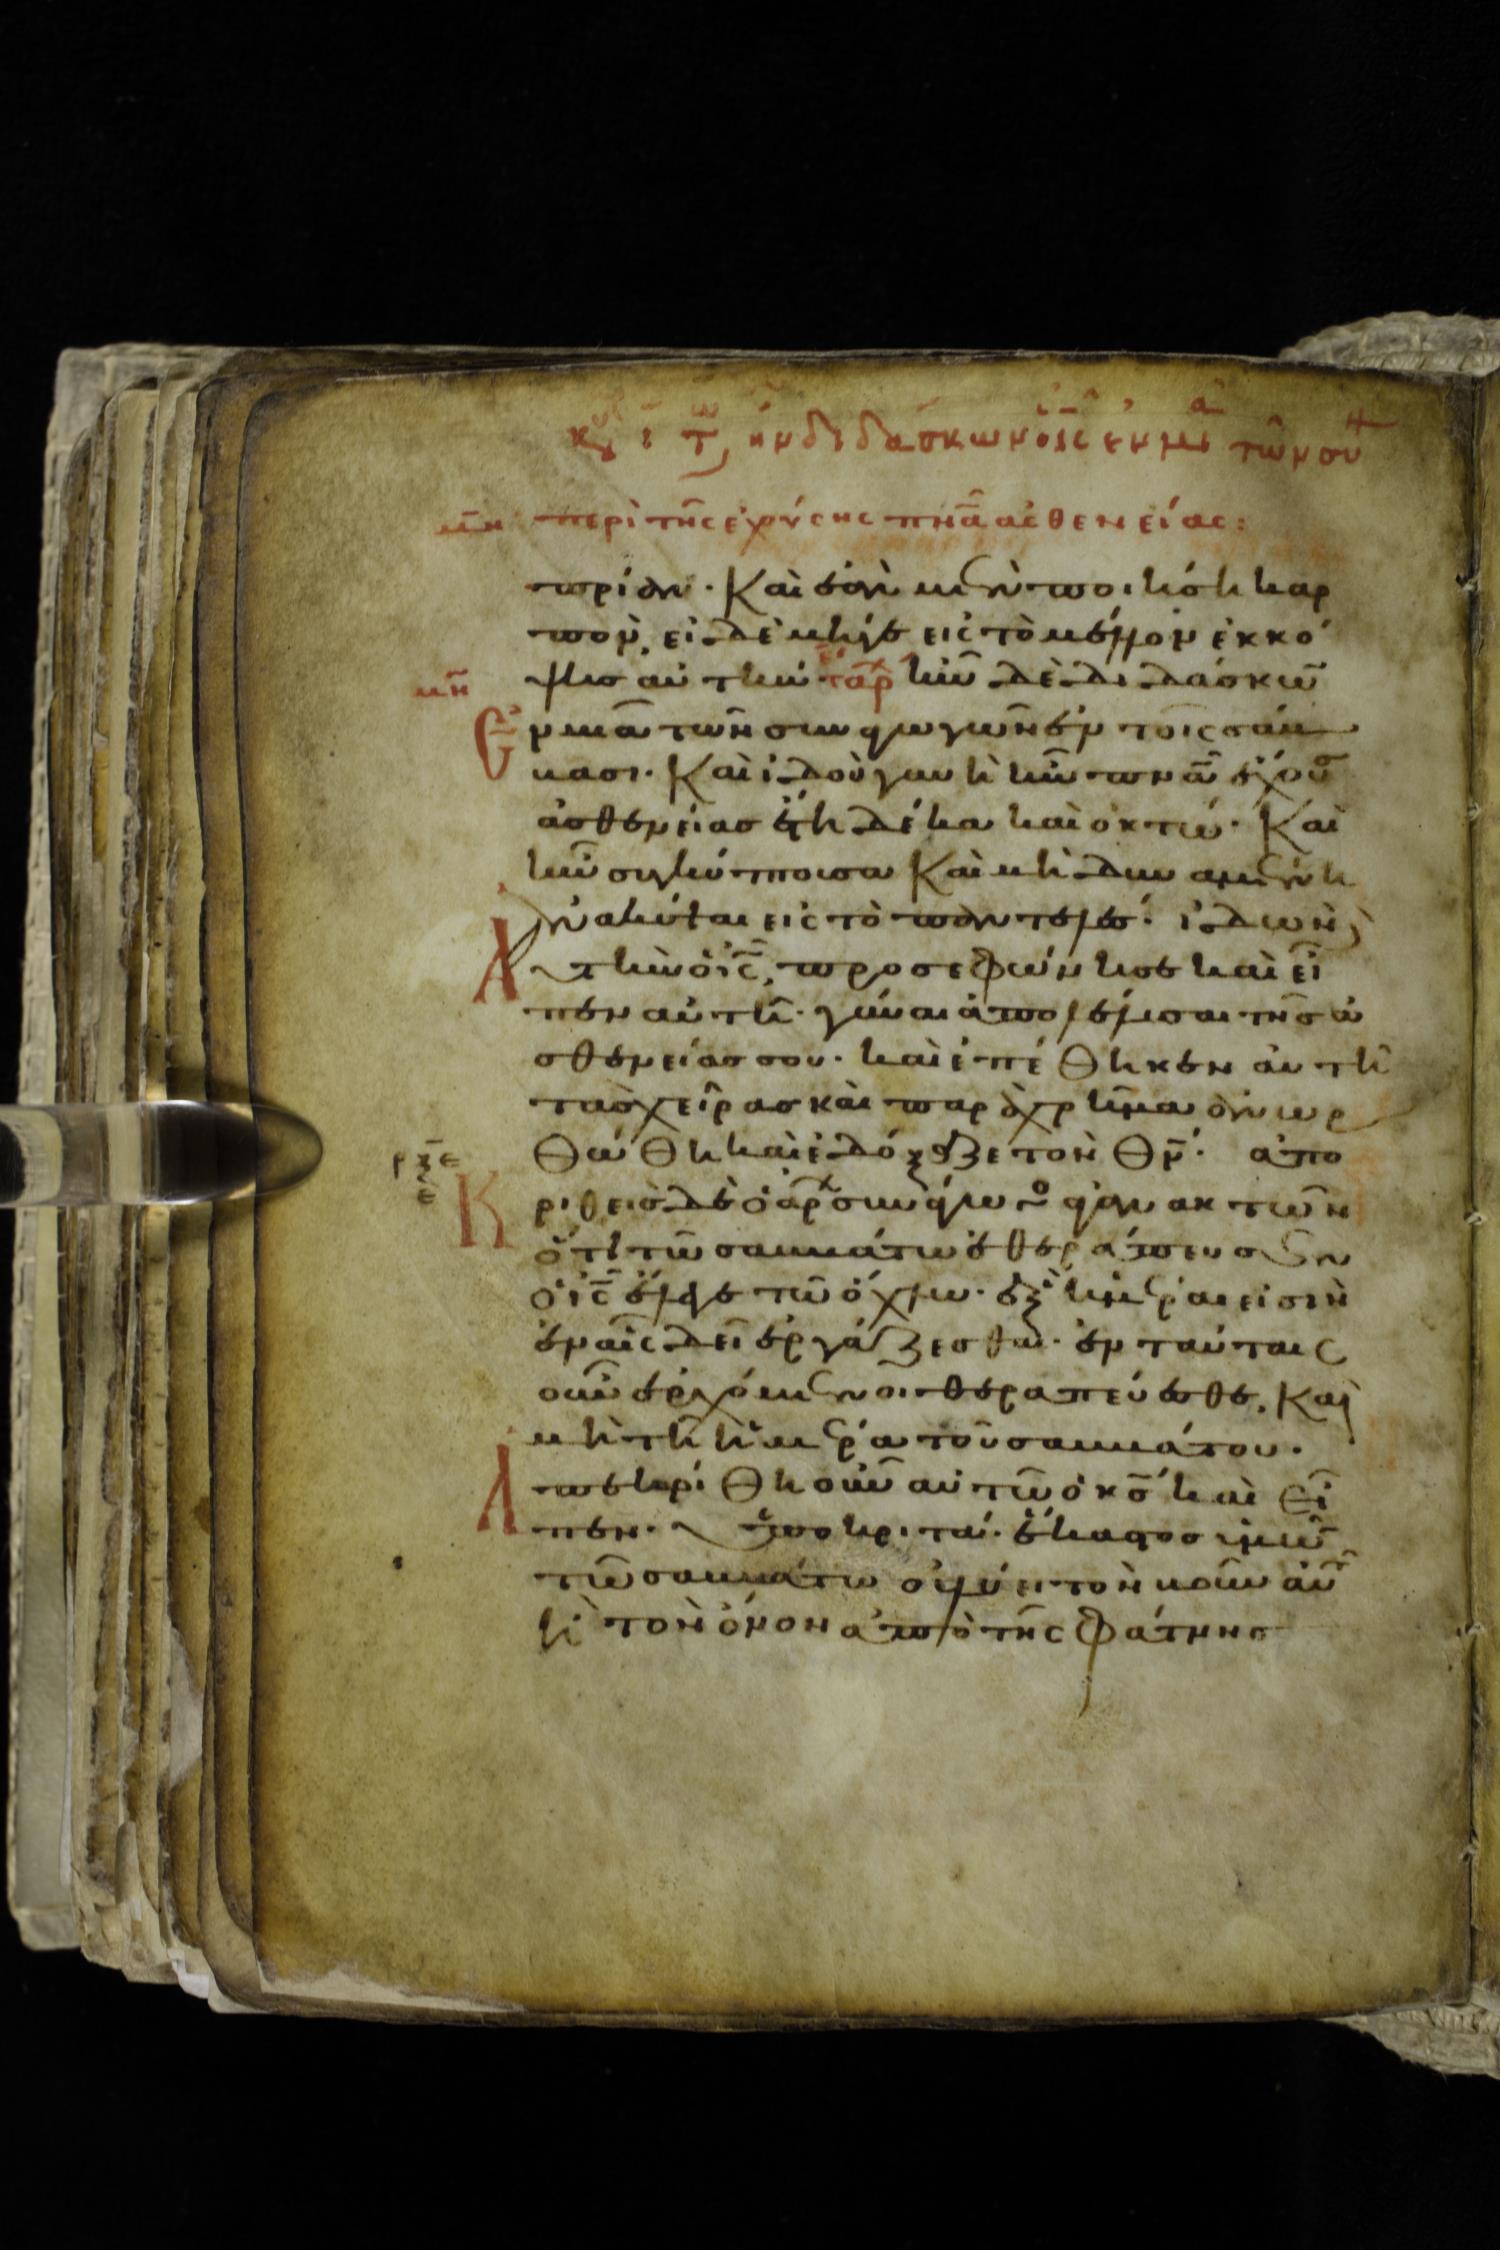 κυ ι τ ην διδάσκων ὁ ις εν μια τῶν συ
μη περὶ τῆς εχούσης πνα ασθενείας:
κόπρίαν. Καὶ ἐὰν μὲν ποιήση καρ
πόν, εἰ δὲ μήγε εἰς τὸ μέλλον ἐκκό
μη ψεις αὐτήν ἀρχ ἦν δὲ διδάσκων
ἐν μιᾶ τῶν συναγωγῶν ἐν τοῖς σάβ
βασι. Καὶ ἰδοὺ γυνὴ ἦν πνα ἔχουσα
ἀσθενείας ἔτη δέκα καὶ ὀκτώ. Καὶ
ἦν συγκύπτουσα Καὶ μὴ δυναμένη
ἀνακύψαι εἰς τὸ παντελές. ἰδὼν
Δὲ αὐτὴν ὁ ις, προσεφώνησε καὶ εἶ
πεν αὐτῆ. γύναι ἀπολέλυσαι τῆς ἀ
σθενείας σου. καὶ ἐπέθηκεν αὐτῆ
τὰς χεῖρας καὶ παραχρῆμα ἀνωρ
θώθη καὶ ἐδόξαζε τὸν θν. απο
ρξε
Κριθεὶς δὲ ὁ ἀρχισυνάγωγος ἀγανακτῶν
ὅτι τῶ σαββάτω ἐθεράπευσεν
ὁ ις ἔλεγε τῶ ὄχλω. ἓξ ἡμέραι εἰσὶν
ἐν αἷς δεῖ ἐργάζεσθαι. ἐν ταύταις
οὖν ἐρχόμενοι θεραπεύεσθε, Καὶ
μὴ τῆ ἡμέρα τοῦ σαββάτου.
Ἀπεκρίθη οὖν αὐτῶ ὁ κς καὶ εἶ
πεν. ὑποκριτά. ἕκαστος ὑμῶν
τῶ σαββάτω οὐ λύει τὸν βοῦν αὐτοῦ
ἢ τὸν ὄνον ἀπὸ τῆς φάτνης